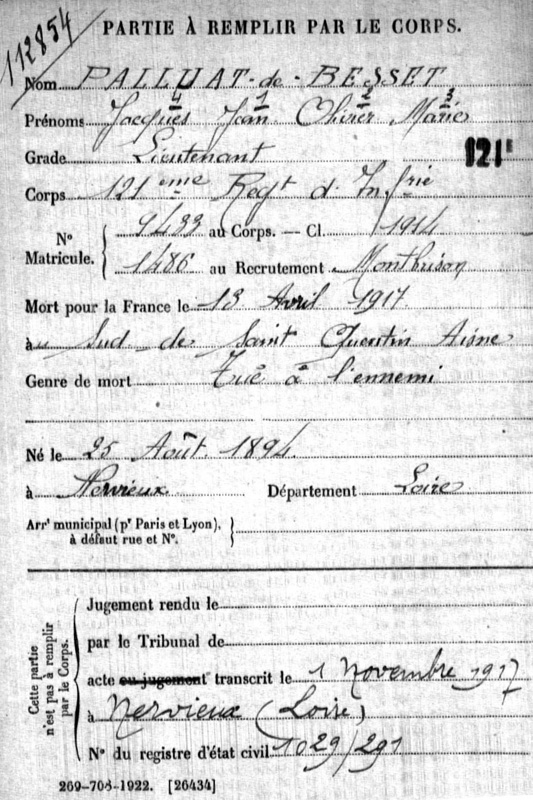 112854
PARTIE À REMPLIR PAR LE CORPS.
Nom PALLUAT-de-BESSET
4 1 2 3
Prénoms Jacques Jean Olivier Marie
Grade Lieutenant
121e
Corps 121 eme Regt d'Infrie
N° Matricule. 9483 au Corps. — Cl. 1914
1486 au Recrutement Montbrison
Mort pour la France le 13 Avril 1917
à Sud de Saint Quentin Aisne
Genre de mort Tué à l'ennemi
Né le 25 Août 1894
à Nervieux Département Loire
Arrt municipal (pr Paris et Lyon),
à défaut rue et N°.
Cette partie
n'est pas à remplir
par le Corps.
Jugement rendu le
par le Tribunal de
acte ou jugement transcrit le 1 Novembre 1917
à Nervieux (Loire)
N° du registre d'état civil 1029/291
269-708-1922. [26434]